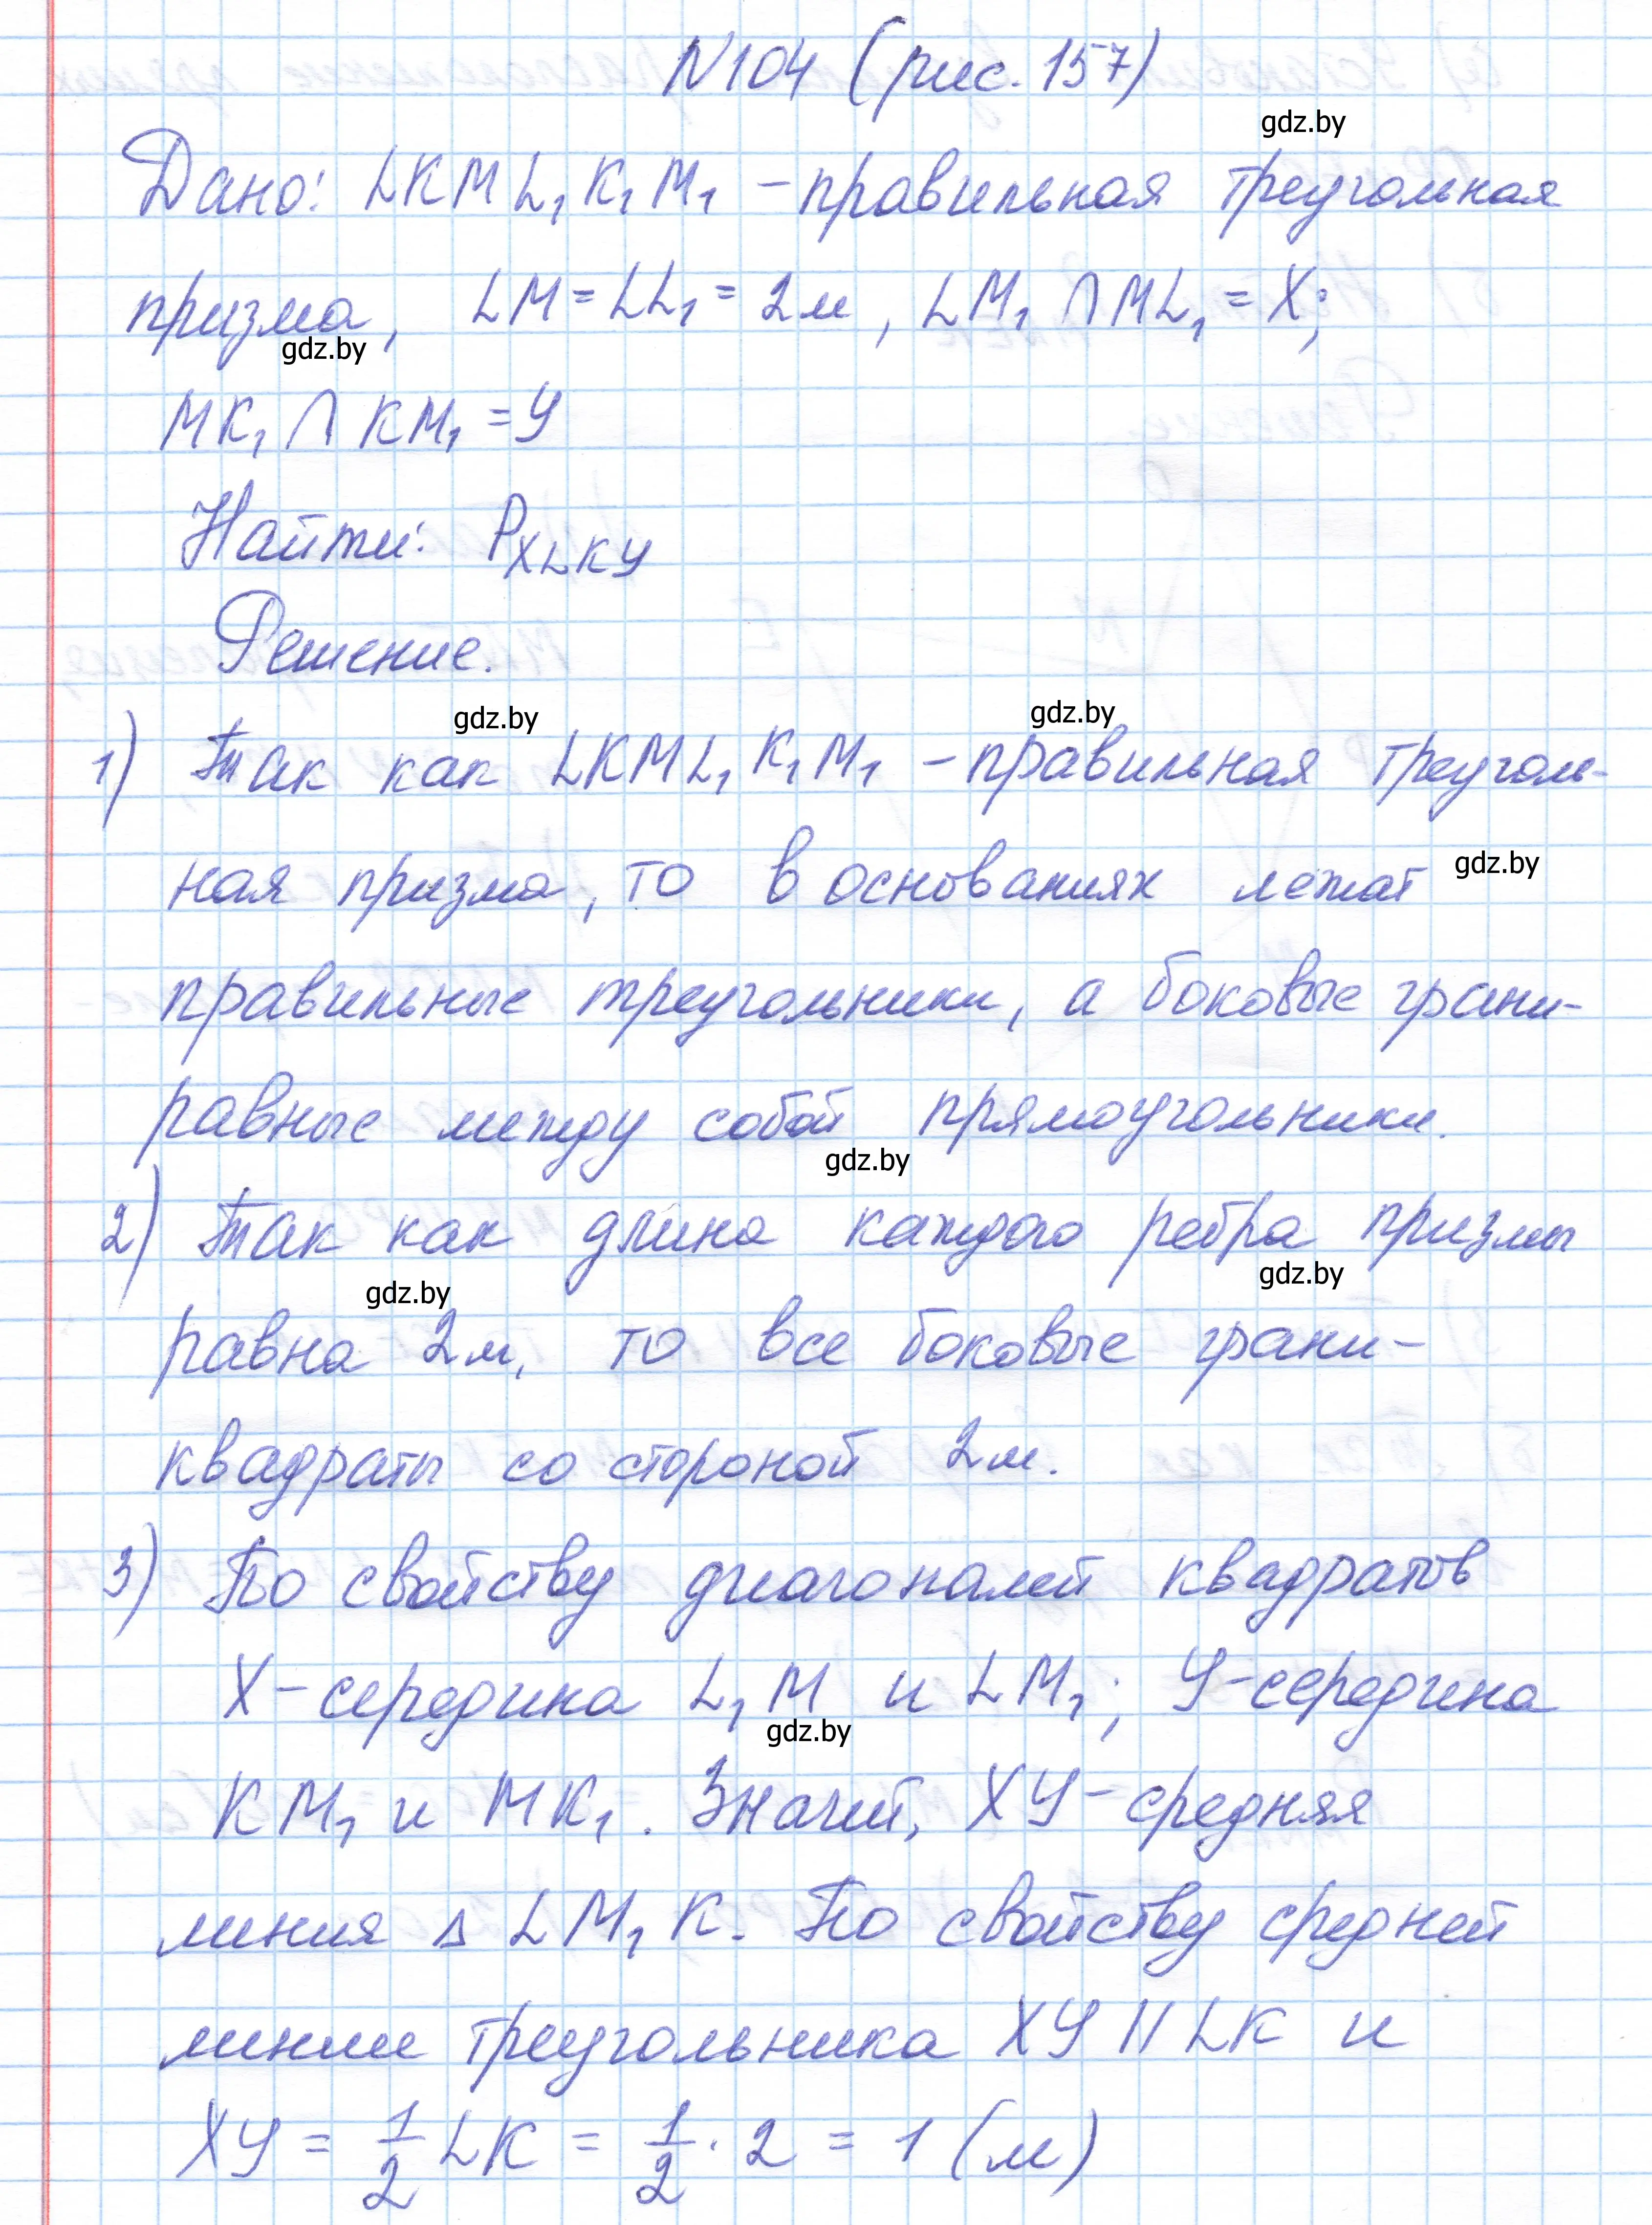 N104 (рис. 157)
gdz.by
Дано: LKML₁K₁M₁ – правильная треугольная
призма, LM = LL₁ = 2м, LM₁ ∩ ML₁ = X;
gdz.by
MK₁ ∩ KM₁ = У
Найти: P_XLKУ
Решение.
gdz.by gdz.by
1) Так как LKML₁K₁M₁ – правильная треуголь-
ная призма, то в основаниях лежат gdz.by
правильные треугольники, а боковые грани-
равные между собой прямоугольники.
gdz.by
2) Так как длина каждого ребра призмы
gdz.by gdz.by
равна 2м, то все боковые грани-
квадраты со стороной 2м.
3) По свойству диагоналей квадратов
X – середина L₁M и LM₁; У – середина
gdz.by
KM₁ и MK₁. Значит, XУ – средняя
линия Δ LM₁K. По свойству средней
линии треугольника XУ || LK и
XУ = 1/2 LK = 1/2 · 2 = 1 (м)